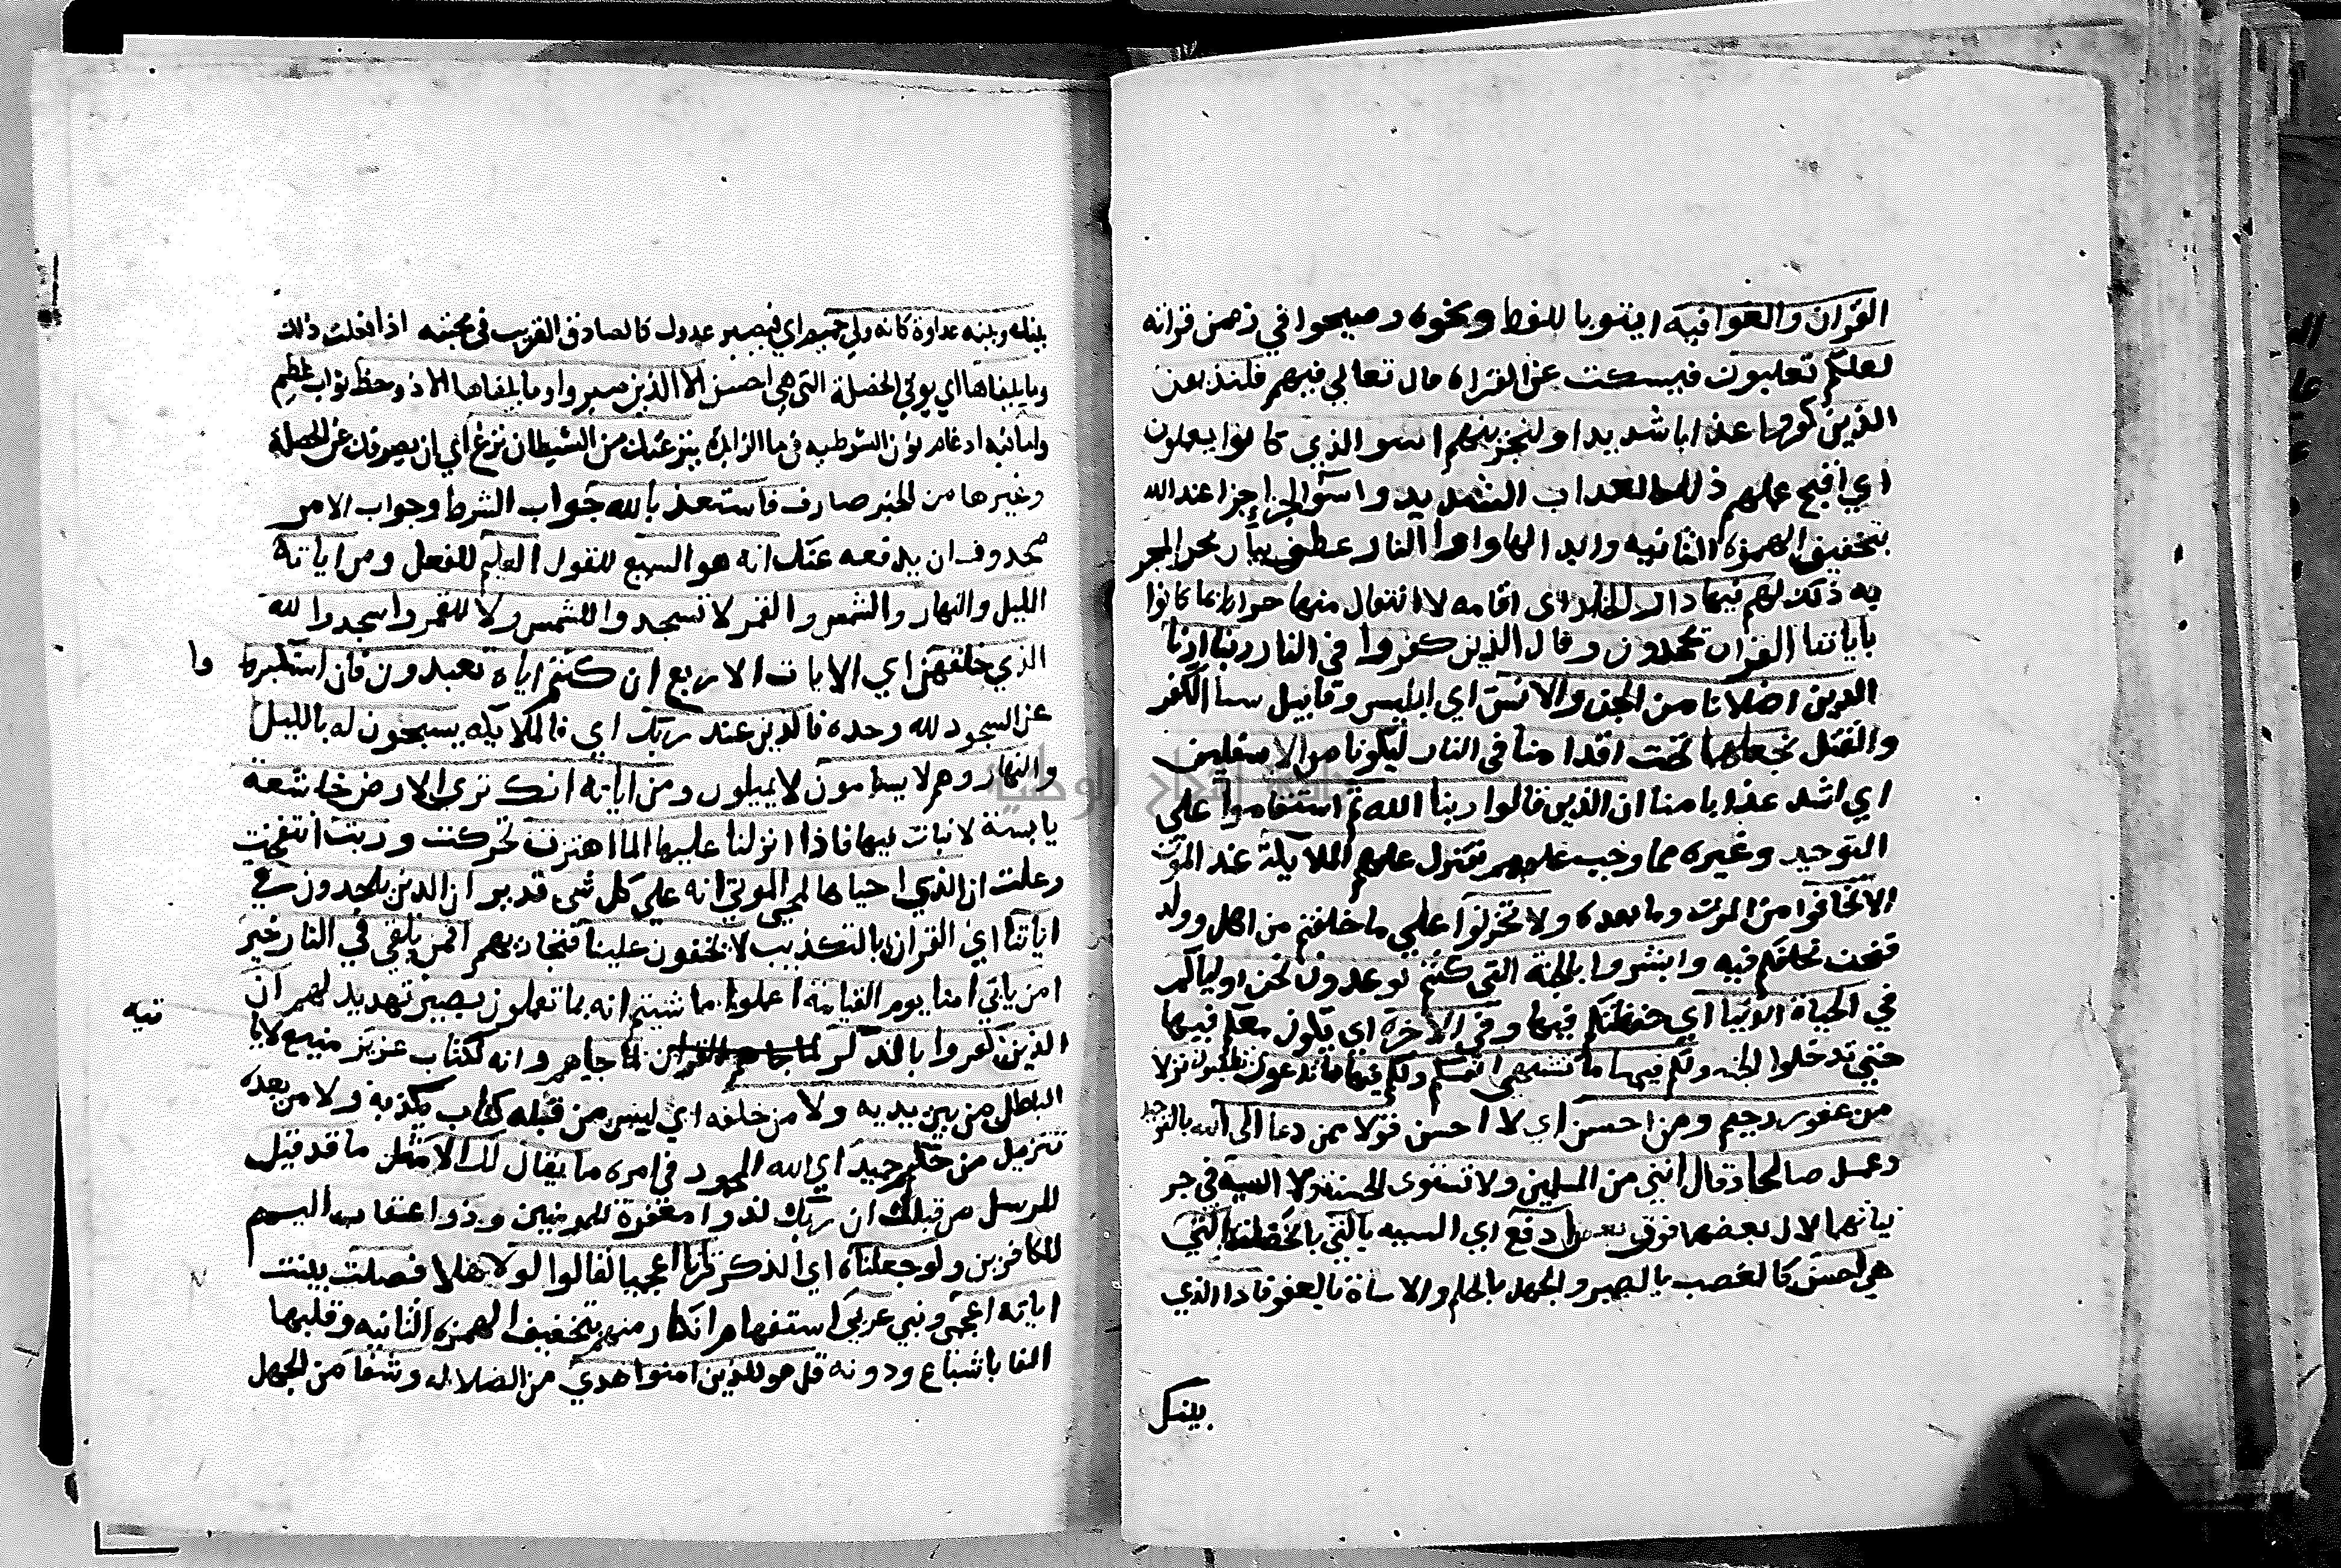 القران والغوا فيه ايتوا باللغط ونحوه وصيحوا في زمن قرانه
لعلكم تغلبون فيسكت عن القراه قال تعالى فيهم فلنذيقن
الذين كفروا عذابا شديدا ولنجزينهم اسو الذي كانوا يعملون
اي اقبح عملهم ذلك العذاب الشديد واسوا الجزا جزا عند الله
بتخفيف الهمزه الثانيه وابدالها واوا النار عطف بيان للجزا المخبر
به ذلك لهم فيها دار الخلد اى اقامه لا انتقال منها جزا بما كانوا
باياتنا القران يجحدون وقال الذين كفروا في النار ربنا ارنا
الذين اضلانا من الجن والانس اي ابليس وقابيل سنا الكفر
والقتل نجعلهما تحت اقدامنا في النار ليكونا من الاسفلين
اي اشد عذابا منا ان الذين قالوا ربنا الله ثم استقاموا على
التوحيد وغيره مما وجب عليهم تتنزل عليهم الملايكة عند الموت
الا تخافوا من الموت وما بعده ولا تحزنوا علي ما خلفتم من اهل وولد
فنحن نخلفكم فيه وابشروا بالجنة التي كنتم توعدون نحن اولياكم
في الحياة الدنيا اي حفظتكم فيها وفي الاخرة اي نكون معكم فيها
حتي تدخلوا الجنه ولكم فيها ما تشتهي انفسكم ولكم فيها ما تدعون تطلبون نزلا
من غفور رحيم ومن احسن اي لا احسن قولا ممن دعا الى الله بالتوحيد
وعمل صالحا وقال انني من المسلمين ولا تستوى الحسنة ولا السيه في جز
يياتهما لان بعضها فوق بعض ادفع اي السييه بالتي بالخصلة التي
هي احسن كالغضب بالصبر والجهل بالحلم والاساة بالعفو فاذا الذي
بينك
بينك وبينه عداوة كانه ولي حميم اي فيصير عدوك كالصادق القريب في محبته اذا فعلت ذلك
وما يلقاها اي يوتي الخصلة التي هي احسن الا الذين صبروا وما يلقاها الا ذو حظ ثواب عظيم
واما فيه ادغام نون الشرطيه في ما الزايدة ينزغنك من الشيطان نزغ اي ان يصرفك عن الخصلة
وغيرها من الخير صارف فاستعذ بالله جواب الشرط وجواب الامر
محذوف ان يدفعه عنك انه هو السميع للقول العليم للفعل ومن اياته
الليل والنهار والشمس والقمر لا تسجدوا للشمس ولا للقمر واسجدوا لله
الذي خلقهن اي الايات الاربع ان كنتم اياه تعبدون فان استكبروا
عن السجود لله وحده فالذين عند ربك اي فالملايكه يسبحون له بالليل
والنهار وهم لا يسامون لا يميلون ومن اياته انك ترى الارض خاشعة
يابسة لا نبات فيها فاذا انزلنا عليها الما اهتزت تحركت وربت انتفخت
وعلت ان الذي احياها لمحي الموتي انه علي كل شي قدير ان الذين يلحدون في
اياتنا اي القران بالتكذيب لا يخفون علينا فنجازيهم افمن يلقى في النار خير
امن ياتي امنا يوم القيامة اعملوا ما شيتم انه بما تعملون بصير تهديد لهم ان
الذين كفروا بالذكر القران لما جاهم وانه لكتاب عزيز منيع لا يا
تيه
الباطل من بين يديه ولا من خلفه اي ليس من قبله كتاب يكذبه ولا من بعده
تنزيل من حكيم حميد اي الله المحمود في امره ما يقال لك الا مثل ما قد قيل
للرسل من قبلك ان ربك لذوا مغفرة للمومنين وذوا عقاب اليم
للكافرين ولو جعلناه اي الذكر قرانا اعجميا لقالوا لولا هلا فصلت بينت
اياته اعجمي ونبي عربي استفهام انكار منهم بتخفيف الهمزه الثانيه وقلبها
الفا باشباع ودونه قل هو للذين امنوا هدي من الضلاله وشفا من الجهل